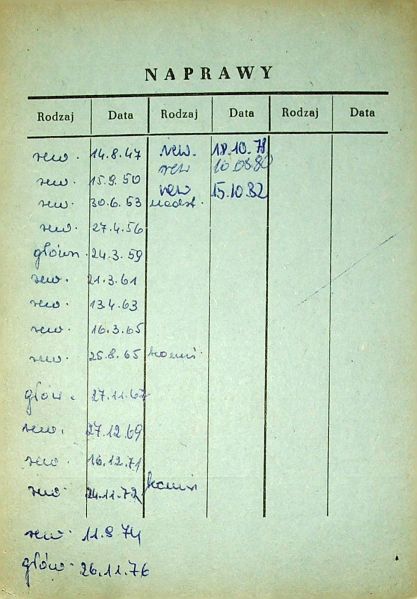 NAPRAWY
Rodzaj Data Rodzaj Data Rodzaj Data
rew. 14.8.47 rew. 18.10.78
rew. 15.9.50 rew 10.0880
rew. 30.6.53 rew 15.10.82
rew. 27.4.56
główn. 24.3.59
rew. 21.3.61
rew. 13.4.63
rew. 16.3.65
rew. 25.8.65
głów. 27.11.67
rew. 27.12.69
rew. 16.12.71
rew. 24.11.72
rew. 11.9 74
głów. 26.11.76